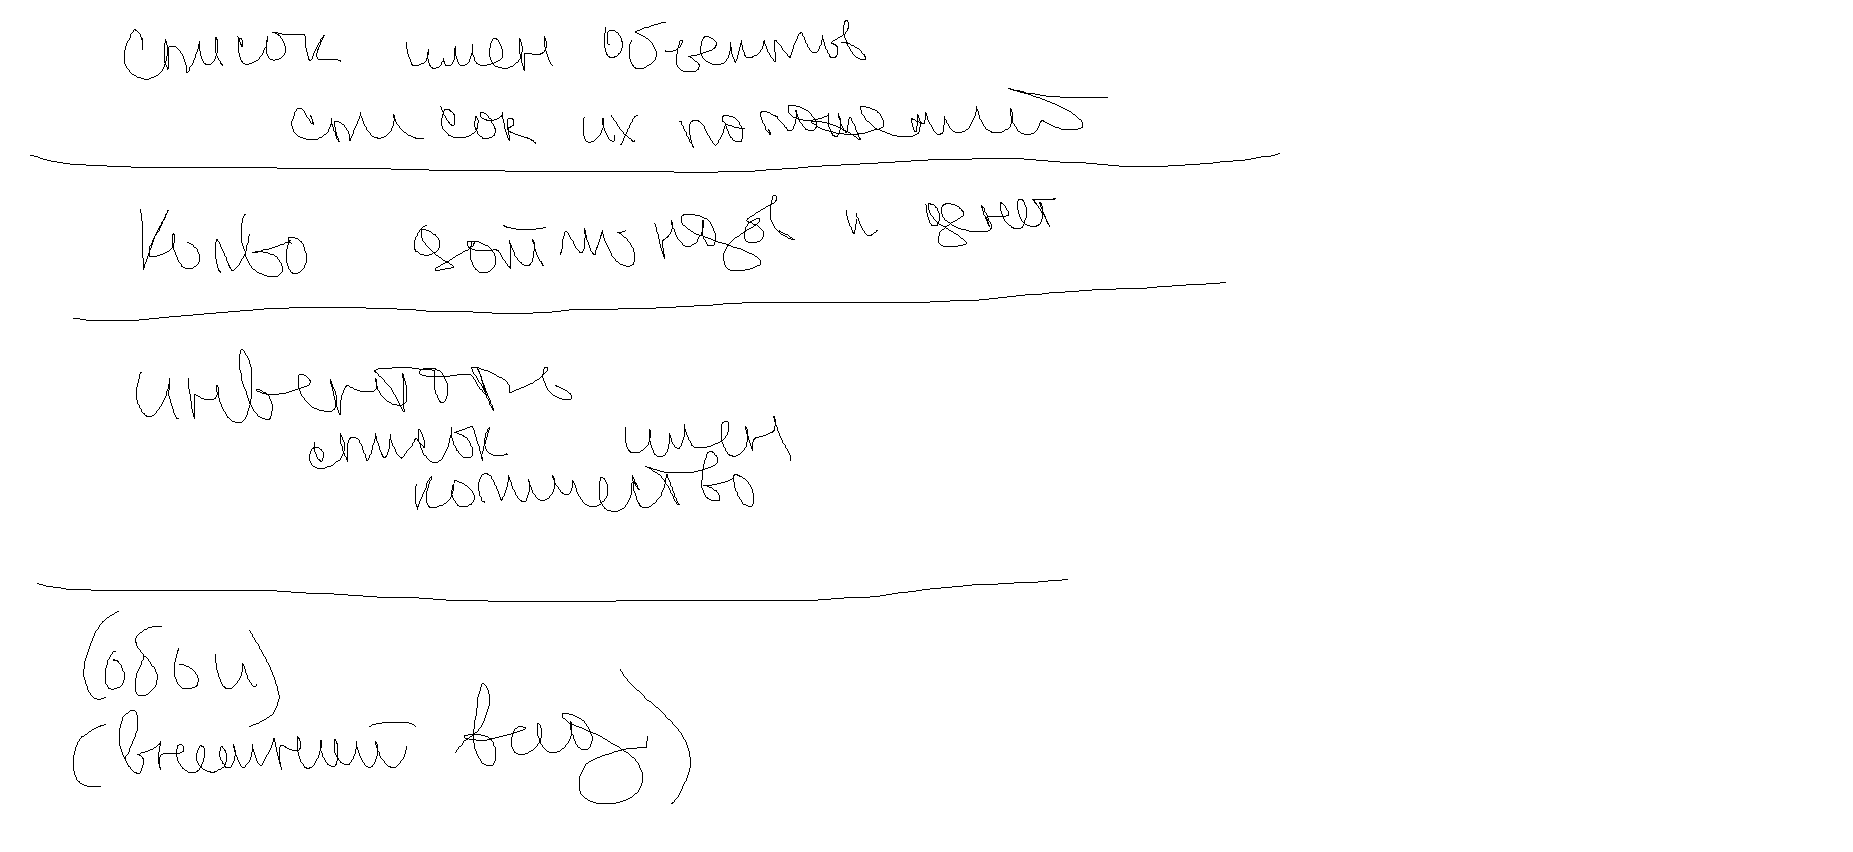 список имен объектов
список их положений
Кол-во даймондов и денег
инвенторь
список имен
количество
(обои)
(внешний вид)